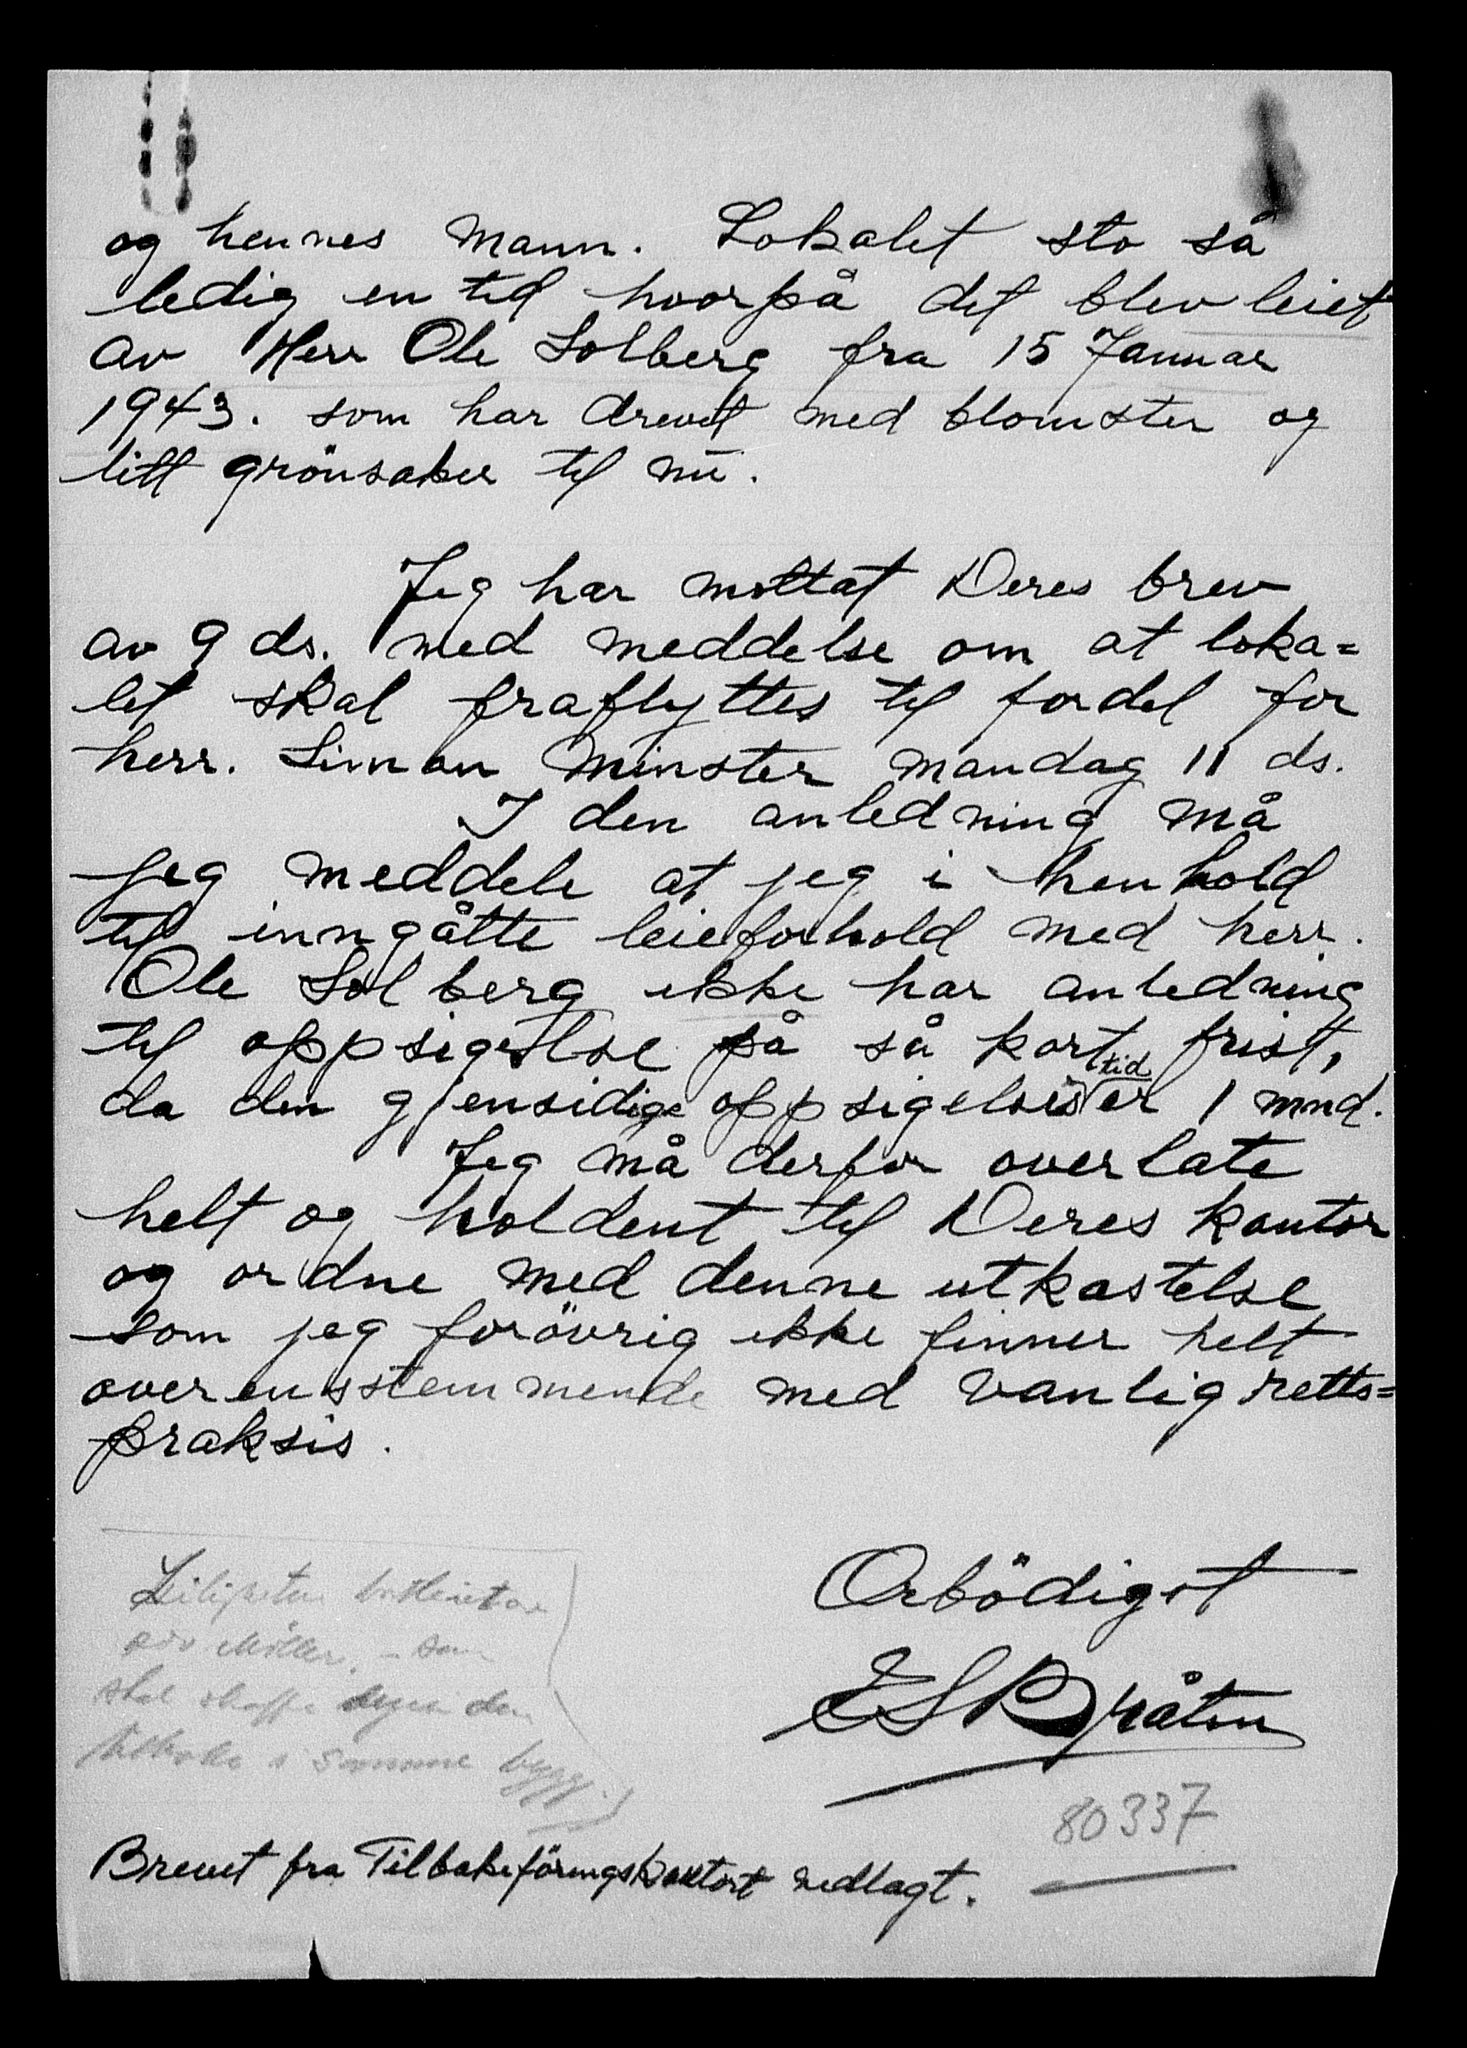 og hennes mann. Lokalet sto så
ledig en tid hvorpå det blev leiet
av Herr Ole Solberg fra 15 Januar
1943. som har drevet med blomster og
litt grönsaker til nu.
Jeg har mottat Deres brev
av 9 ds. med meddelse om at loka=
let skal fraflyttes til fordel for
herr. Simon Minster mandag 11 ds.
I den anledning må
jeg meddele at jeg i henhold
til inngåtte leieforhold med herr.
Ole Solberg ikke har anledning
til oppsigelse på så kort frist,
da den gjensidige oppsigelses tid er 1 mnd.
Jeg må derfor overlate
helt og holdent til Deres kontor
og ordne med denne utkastelse
som jeg forövrig ikke finner helt
overensstemmende med vanlig retts=
praksis.
Ærbödigst
E S Bråten
Möller. – som
skal skaffe
i samme bygg.
80337
Brevet fra Tilbakeföringskontort vedlagt.